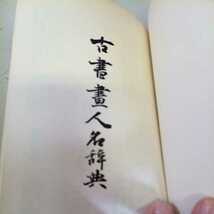 古書畫人名辞典